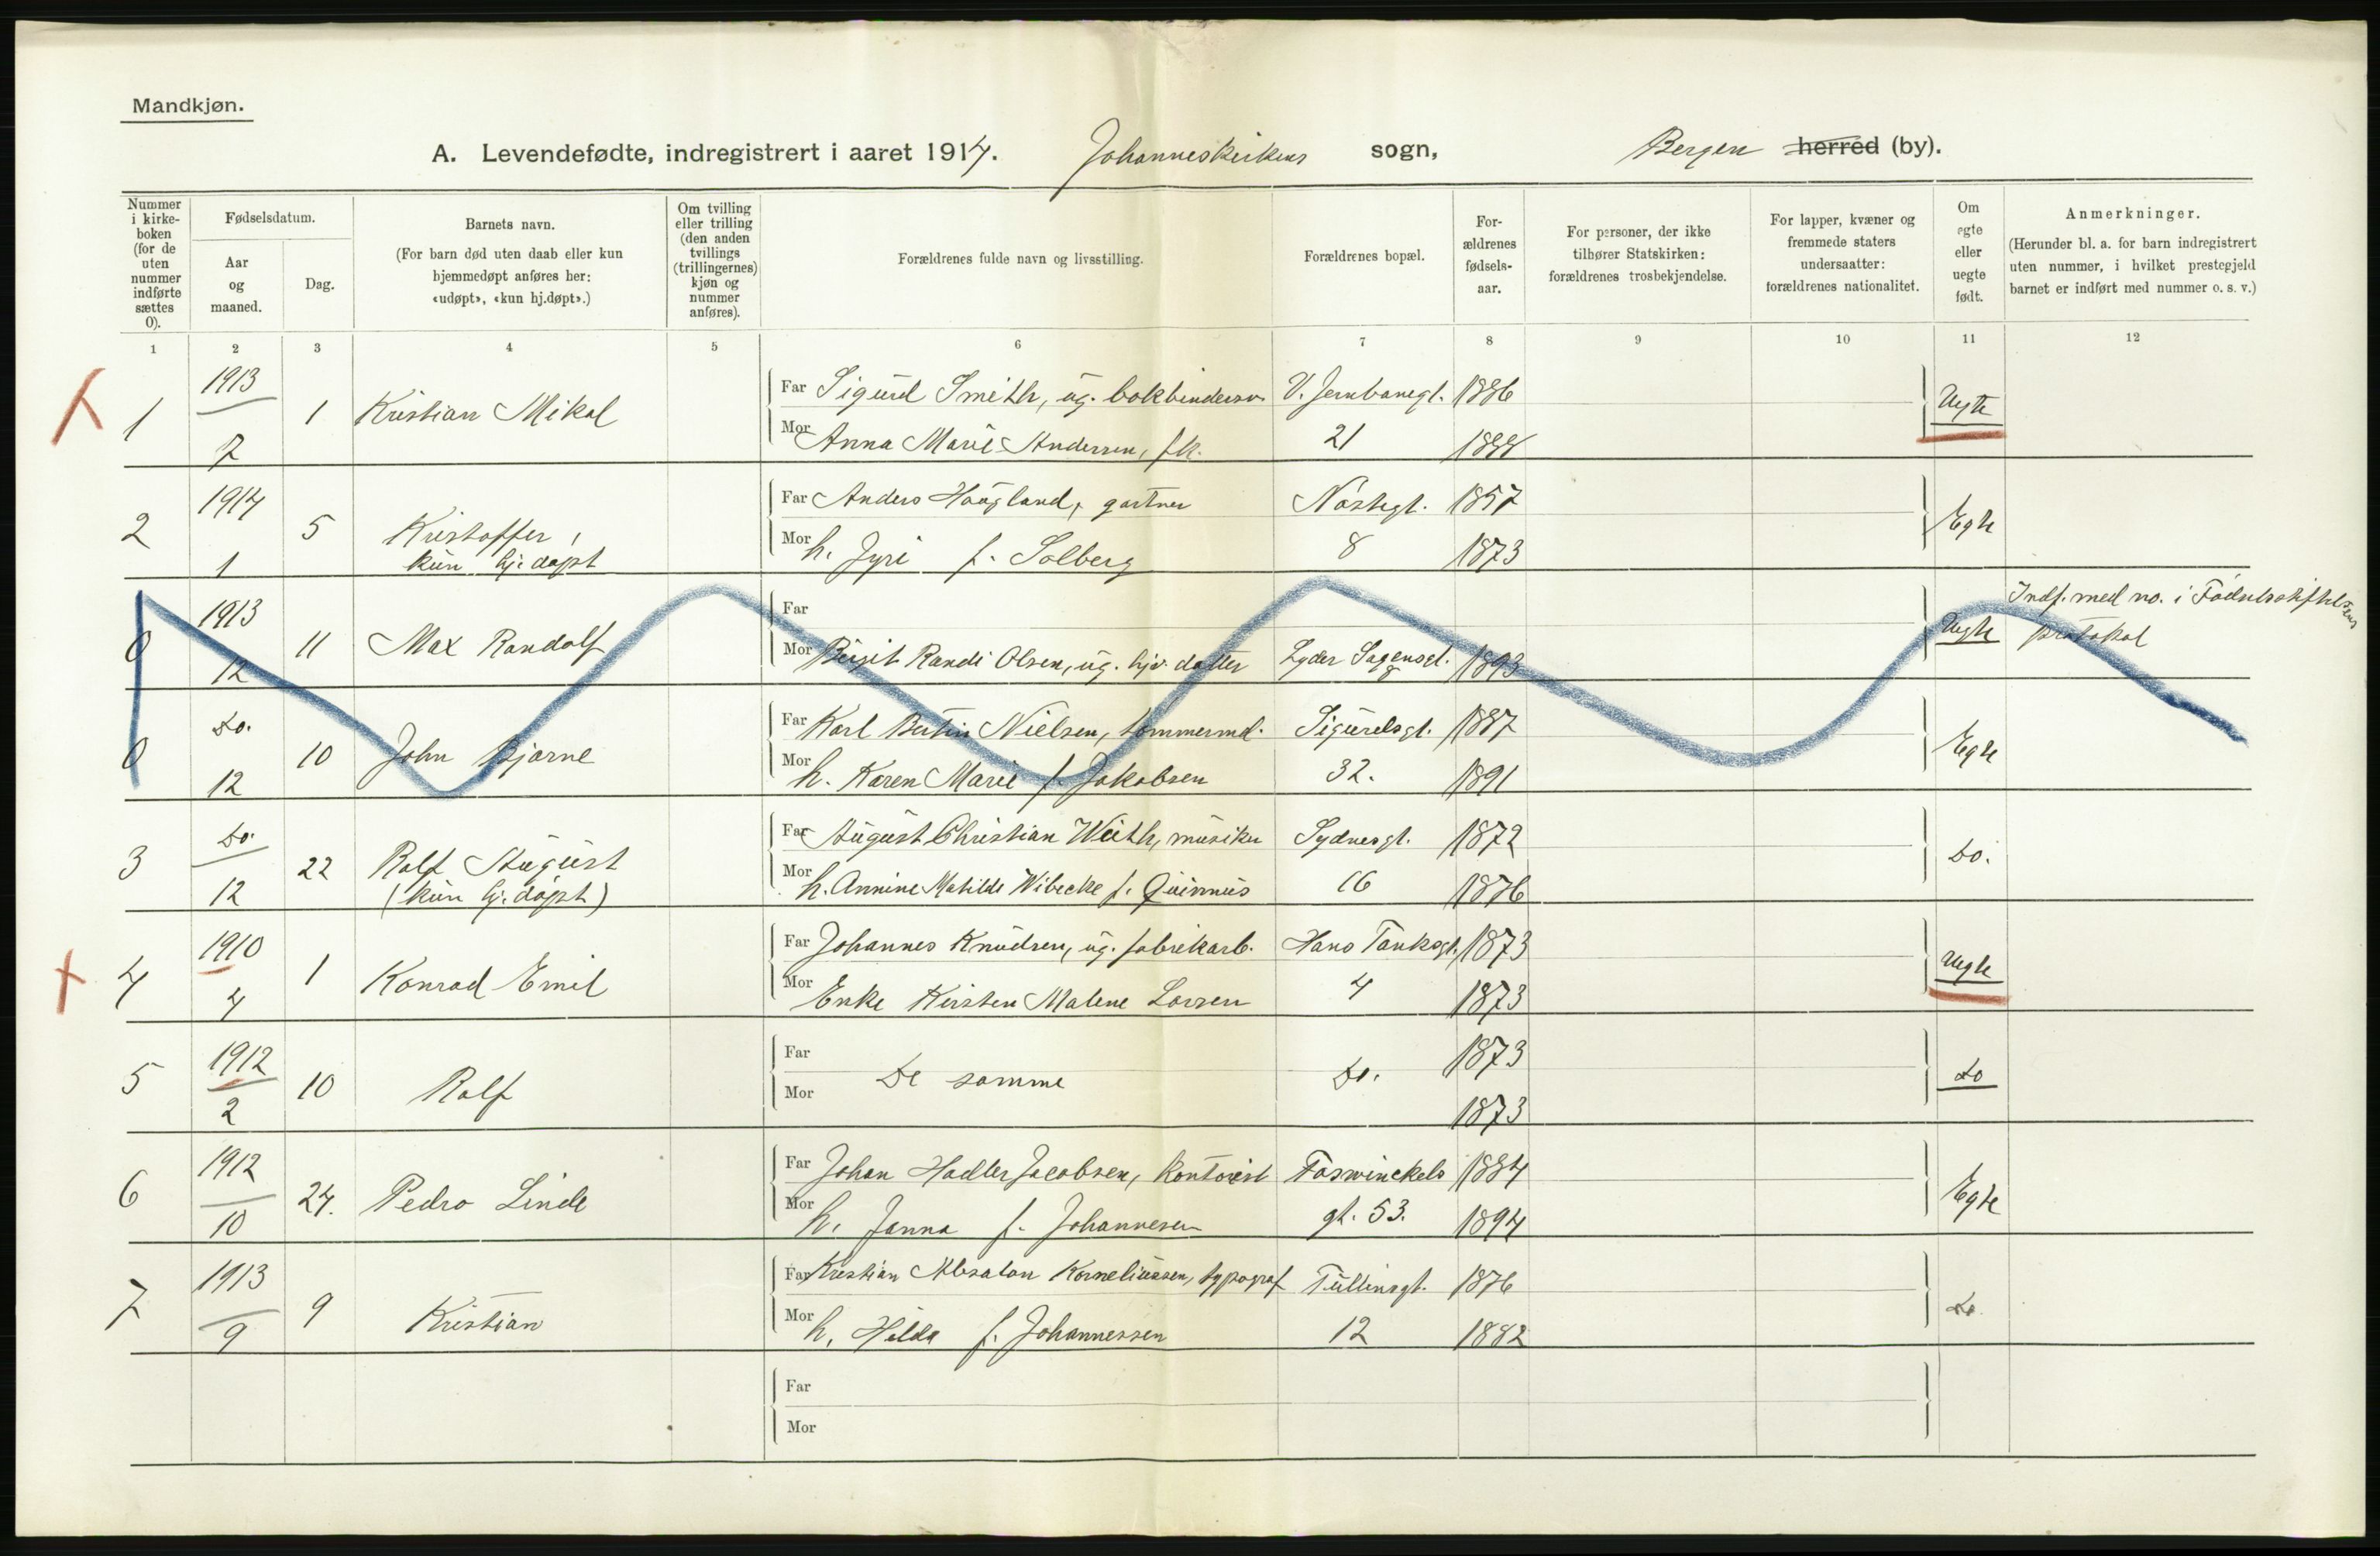 Mandkjøn.
A. Levendefødte, indregistrert i aaret 1914. Johanneskirkens sogn, Bergen herred (by).
Nummer i kirke-boken (for de uten nummer indførte sættes 0).
Fødselsdatum.
Aar og maaned.
Dag.
Barnets navn.
(For barn død uten daab eller kun hjemmedøpt anføres her: «udøpt», «kun hj.døpt».)
Om tvilling eller trilling (den anden tvillings (trillingernes) kjøn og nummer anføres).
Forældrenes fulde navn og livsstilling.
Forældrenes bopæl.
For-ældrenes fødsels-aar.
For personer, der ikke tilhører Statskirken: forældrenes trosbekjendelse.
For lapper, kvæner og fremmede staters undersaatter: forældrenes nationalitet.
Om egte eller uegte født.
Anmerkninger.
(Herunder bl. a. for barn indregistrert uten nummer, i hvilket prestegjeld barnet er indført med nummer o. s. v.)
1 2 3 4 5 6 7 8 9 10 11 12
1 1913 7 1 Kristian Mikal
Far Sigurd Smith, ug. bokbindersv. V. Jernbanegt. 1886 Uegte
Mor Anna Marie Andersen, fk. 21 1888
2 1914 1 5 Kristoffer, kun hj. døpt
Far Anders Haugland, gartner Nøstegt. 1857 Egte
Mor h. Jyri f. Solberg 8 1873
0 1913 12 11 Max Randolf
Far
Mor Birgit Randi Olsen, ug. hjv. datter Lyder Sagensgt. 8 1893 Uegte Indf. med no. i Fødselsstiftelsens protokol
0 Do. 12 10 John Bjarne
Far Karl Bertin Nielsen, tømmermd. Sigurdsgt. 1887 Egte
Mor h. Karen Marie f. Jakobsen 32. 1891
3 Do. 12 22 Rolf August (kun hj. døpt)
Far August Christian Weith, musiker Sydnesgt. 1872 Do.
Mor h. Annine Matilde Wibecke f. 16 1876
4 1910 4 1 Konrad Emil
Far Johannes Knudsen, ug. fabrikarb. Hans Tanksgt. 1873 Uegte
Mor Enke Kirsten Malene Larsen 4 1873
5 1912 2 10 Rolf
Far De samme Do. 1873 Do
Mor 1873
6 1912 10 24. Pedro Linde
Far Johan Hadler Jacobsen, kontorist Foswinckels 1884 Egte
Mor h. Janna f. Johannesen gt. 53. 1894
7 1913 9 9 Kristian
Far Kristian Absalon Korneliussen, typograf Tullinsgt. 1876 Do.
Mor h. Hilda f. Johannessen 12 1882
Far
Mor